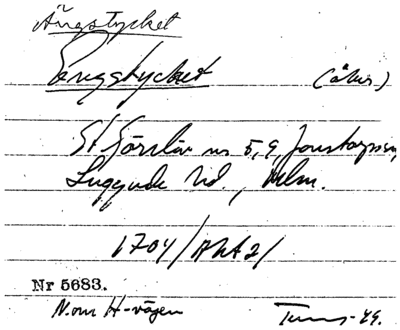 Ängstycket
Engstycket (åker)
St Görslöv nr 5, 9, Jonstorp sn,
Luggude hd., Mlm.
1704/Akt 2/
Nr 5683.
N. om H-vägen